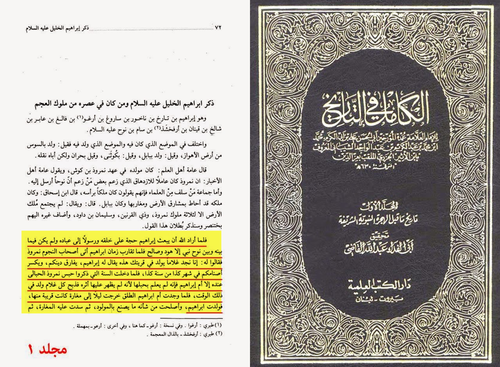 ذكر إبراهيم الخليل عليه السلام
٧٢
ذكر إبراهيم الخليل عليه السلام ومن كان في عصره من ملوك العجم
وهو إبراهيم بن تارخ بن ناخور بن ساروغ بن أرغو(١) بن فالغ بن عابر بن
شالخ بن قينان بن أرفخشذ(٢) بن سام بن نوح عليه السلام.
واختلف في الموضع الذي كان فيه والموضع الذي ولد فيه فقيل: ولد بالسوس
من أرض الأهواز، وقيل: ولد ببابل، وقيل: بكوثى، وقيل بحران ولكن أباه نقله.
قال عامة أهل العلم: كان مولده في عهد نمروذ بن كوش، ويقول عامة أهل
الأخبار: إن نمروذ كان عاملا للازدهاق الذي زعم بعض من زعم أن نوحاً أرسل إليه.
وأما جماعة من سلف من العلماء فإنهم يقولون كان ملكاً برأسه، قال ابن إسحاق: وكان
ملكه قد أحاط بمشارق الأرض ومغاربها وكان ببابل، قال: ويقال: لم يجتمع ملك
الأرض الا لثلاثة ملوك نمروذ، وذي القرنين، وسليمان بن داود، وأضاف غيره إليهم
بختنصر وسنذكر بطلان هذا القول.
فلما أراد الله أن يبعث إبراهيم حجة على خلقه ورسولاً إلى عباده ولم يكن فيما
بينه وبين نوح نبي إلا هود وصالح فلما تقارب زمان إبراهيم أتى أصحاب النجوم نمروذ
فقالوا له: إنا نجد غلاماً يولد في قريتك هذه يقال له إبراهيم، يفارق دينكم، ويكسر
أصنامكم في شهر كذا من سنة كذا، فلما دخلت السنة التي ذكروا حبس نمروذ الحبالى
عنده إلا أم إبراهيم فإنه لم يعلم بحبلها لأنه لم يظهر عليها أثره فذبح كل غلام ولد في
ذلك الوقت، فلما وجدت أم إبراهيم الطلق خرجت ليلا إلى مغارة كانت قريبة منها،
فولدت إبراهيم، وأصلحت من شأنه ما يصنع بالمولود، ثم سدت عليه المغارة، ثم
(١) طبري: أرغوا، وفي نسخة: أرغو، كما هنا، وفي أخرى: أرعو، بمهملة.
(٢) طبري: أرفخشد، بالدال المعجمة.
مجلد ١
الكامل في التاريخ
المجلد الأول
تاريخ ما قبل الهجرة النبوية الشريفة
تحقيق
أبي الفداء عبد الله القاضي
دار الكتب العلمية
بيروت - لبنان